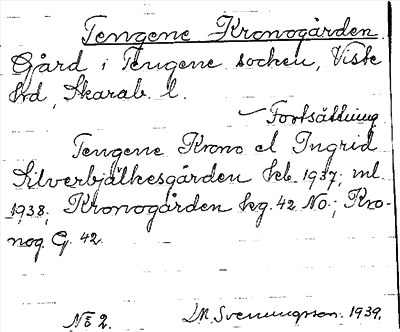 Tengene Kronogården
Gård i Tengene socken, Viste
hd, Skarab. l.
Fortsättning
Tengene Krono el Ingrid
Silverbjälkesgården hlb 1937; ml
1938; Kronogården hg. 42 No.; Kro-
nog. G. 42
No 2. D.N. Svenningson. 1939.